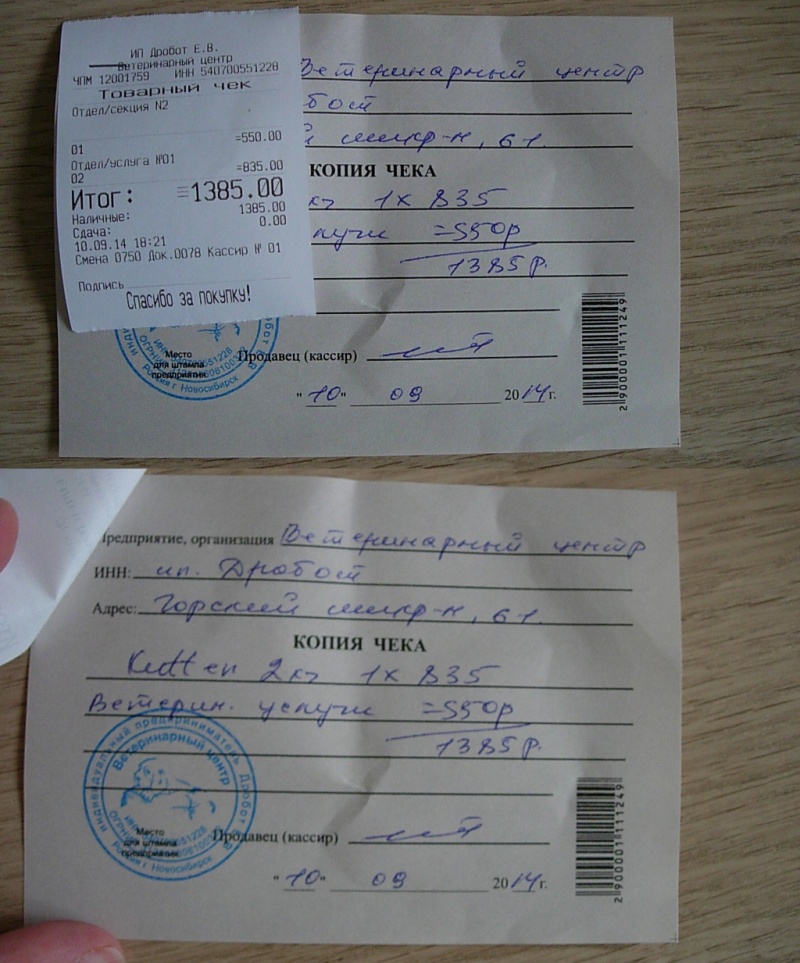 ИП Дробот Е.В.
Ветеринарный центр
ЧПМ 12001759 ИНН 540700551228
Товарный чек
Отдел/секция N2
01 =550.00
Отдел/услуга №01
02 =835.00
Итог: =1385.00
Наличные: 1385.00
Сдача: 0.00
10.09.14 18:21
Смена 0750 Док.0078 Кассир № 01
Подпись
Спасибо за покупку!
Ветеринарный центр
бот
й микр-н, 61.
КОПИЯ ЧЕКА
кг 1х 835
луги =550р
1385р.
Место
для штампа
предприятия
Продавец (кассир)
Россия г. Новосибирск
"10" 09 2014г.
2 900001 111249
Предприятие, организация Ветеринарный центр
ИНН: ип. Дробот
Адрес: Горский микр-н, 61.
КОПИЯ ЧЕКА
Kitten 2кг 1х 835
Ветерин. услуги =550р
1385р.
индивидуальный предприниматель Дробот
Ветеринарный центр
ИНН 540700551228
Россия г. Новосибирск
Место
для штампа
предприятия
Продавец (кассир)
"10" 09 2014г.
2 900001 111249